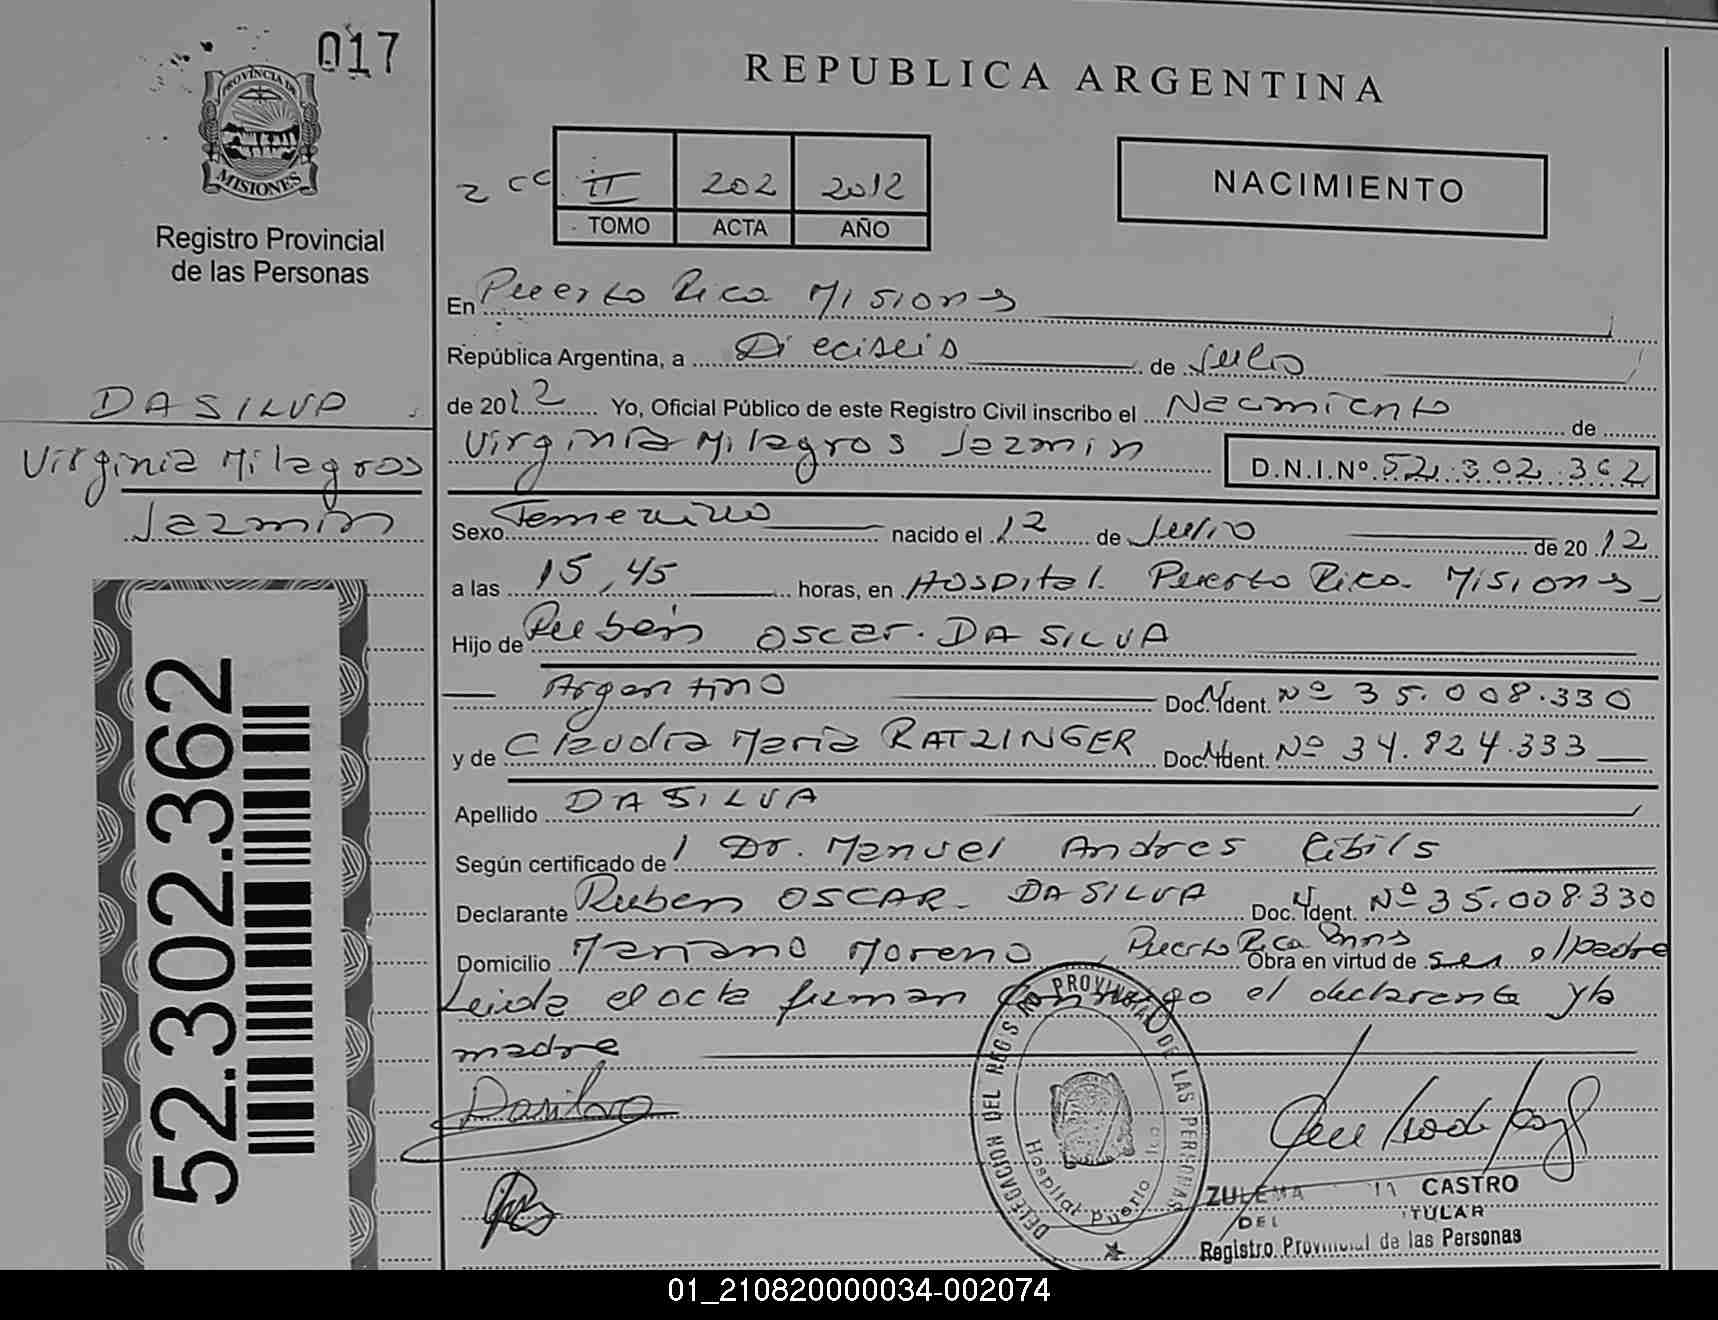 017
PROVINCIA DE
MISIONES
Registro Provincial
de las Personas
DA SILVA
Virginia Milagros
Jazmin
52.302.362
REPUBLICA ARGENTINA
2 CC II 202 2012
TOMO ACTA AÑO
NACIMIENTO
En Puerto Rico Misiones
República Argentina, a Dieciseis de Julio
de 2012 Yo, Oficial Público de este Registro Civil inscribo el Nacimiento de
Virginia Milagros Jazmin D.N.I.Nº 52.302.362
Sexo Femenino nacido el 12 de Julio de 2012
a las 15,45 horas, en Hospital. Puerto Rico. Misiones
Hijo de Rubén Oscar. DA SILVA
Argentino Doc. Ident. Nº 35.008.330
y de Claudia Maria RATZINGER Doc. Ident. Nº 34.824.333
Apellido DA SILVA
Según certificado de Dr. Manuel Andres Cibils
Declarante Ruben OSCAR. DA SILVA Doc. Ident. Nº 35.008.330
Domicilio Mariano Moreno, Puerto Rico Mnes Obra en virtud de ser el padre
Leida el acta firman conmigo el declarante y la
madre
Dasilva
DELEGACION DEL REGISTRO PROVINCIAL DE LAS PERSONAS
Hospital Puerto
ZULEMA CASTRO
DEL TITULAR
Registro Provincial de las Personas
01_210820000034-002074